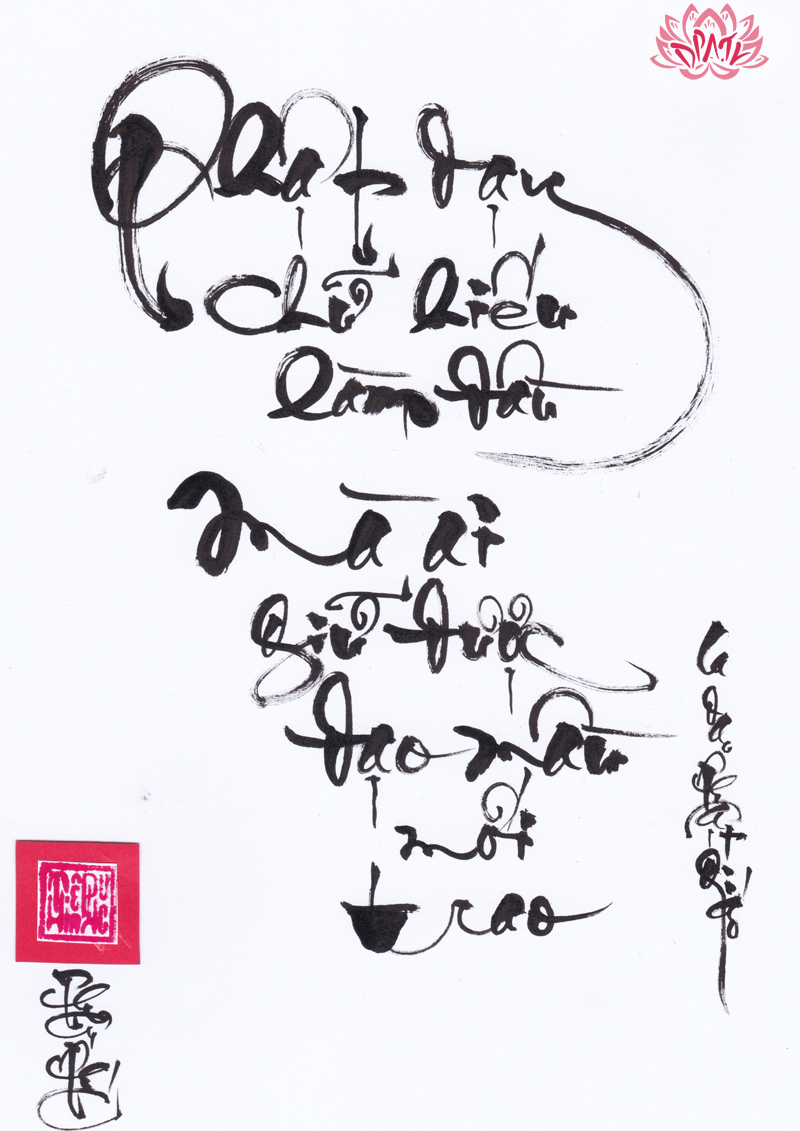 Phật dạy
chữ hiếu
làm đầu
mà ai
giữ được
đạo mầu
mới
trao